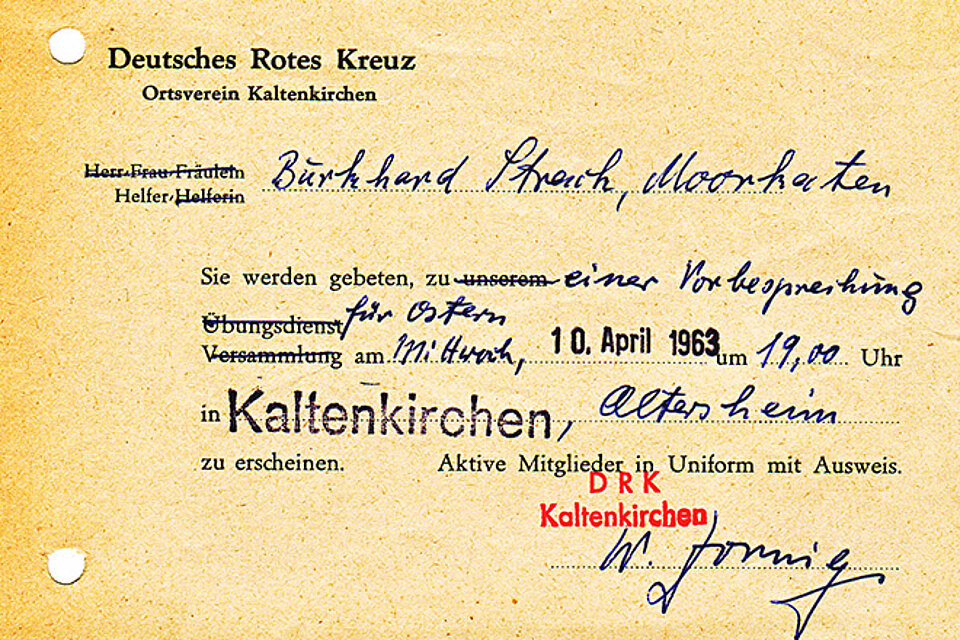 Deutsches Rotes Kreuz
Ortsverein Kaltenkirchen
Herr Frau Fräulein
Helfer Helferin
Burkhard Strach, Moorkaten
Sie werden gebeten, zu unserem einer Vorbesprechung
Übungsdienst für Ostern
Versammlung am Mittwoch, 10. April 1963 um 19,00 Uhr
in Kaltenkirchen, Altersheim
zu erscheinen. Aktive Mitglieder in Uniform mit Ausweis.
DRK
Kaltenkirchen
W.